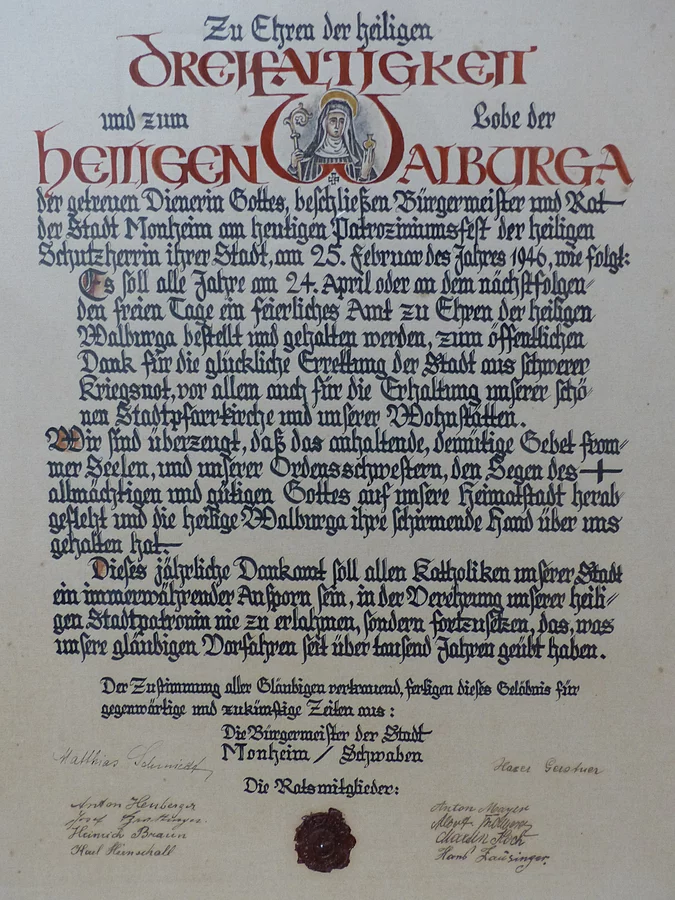 Zu Ehren der heiligen
DREIFALTIGKEIT
und zum Lobe der
HEILIGEN WALBURGA
der getreuen Dienerin Gottes, beschließen Bürgermeister und Rat
der Stadt Monheim am heutigen Patroziniumsfest der heiligen
Schutzherrin ihrer Stadt, am 25. Februar des Jahres 1946, wie folgt:
Es soll alle Jahre am 24. April oder an dem nächstfolgen-
den freien Tage ein feierliches Amt zu Ehren der heiligen
Walburga bestellt und gehalten werden, zum öffentlichen
Dank für die glückliche Errettung der Stadt aus schwerer
Kriegsnot, vor allem auch für die Erhaltung unserer schö-
nen Stadtpfarrkirche und unserer Wohnstätten.
Wir sind überzeugt, daß das anhaltende, demütige Gebet from-
mer Seelen, und unserer Ordensschwestern, den Segen des
allmächtigen und gütigen Gottes auf unsere Heimatstadt herab-
gefleht und die heilige Walburga ihre schirmende Hand über uns
gehalten hat.
Dieses jährliche Dankamt soll allen Katholiken unserer Stadt
ein immerwährender Ansporn sein, in der Verehrung unserer heili-
gen Stadtpatronin nie zu erlahmen, sondern fortzusetzen, das, was
unsere gläubigen Vorfahren seit über tausend Jahren geübt haben.
Der Zustimmung aller Gläubigen vertrauend, fertigen dieses Gelöbnis für
gegenwärtige und zukünftige Zeiten aus:
Die Bürgermeister der Stadt
Monheim / Schwaben
Matthias Schmidt
Gerstner
Die Ratsmitglieder:
Anton Heuberger
Josef
Heinrich Braun
Karl Hienschall
Anton Mayer
Martin Koch
Hans Lausinger.